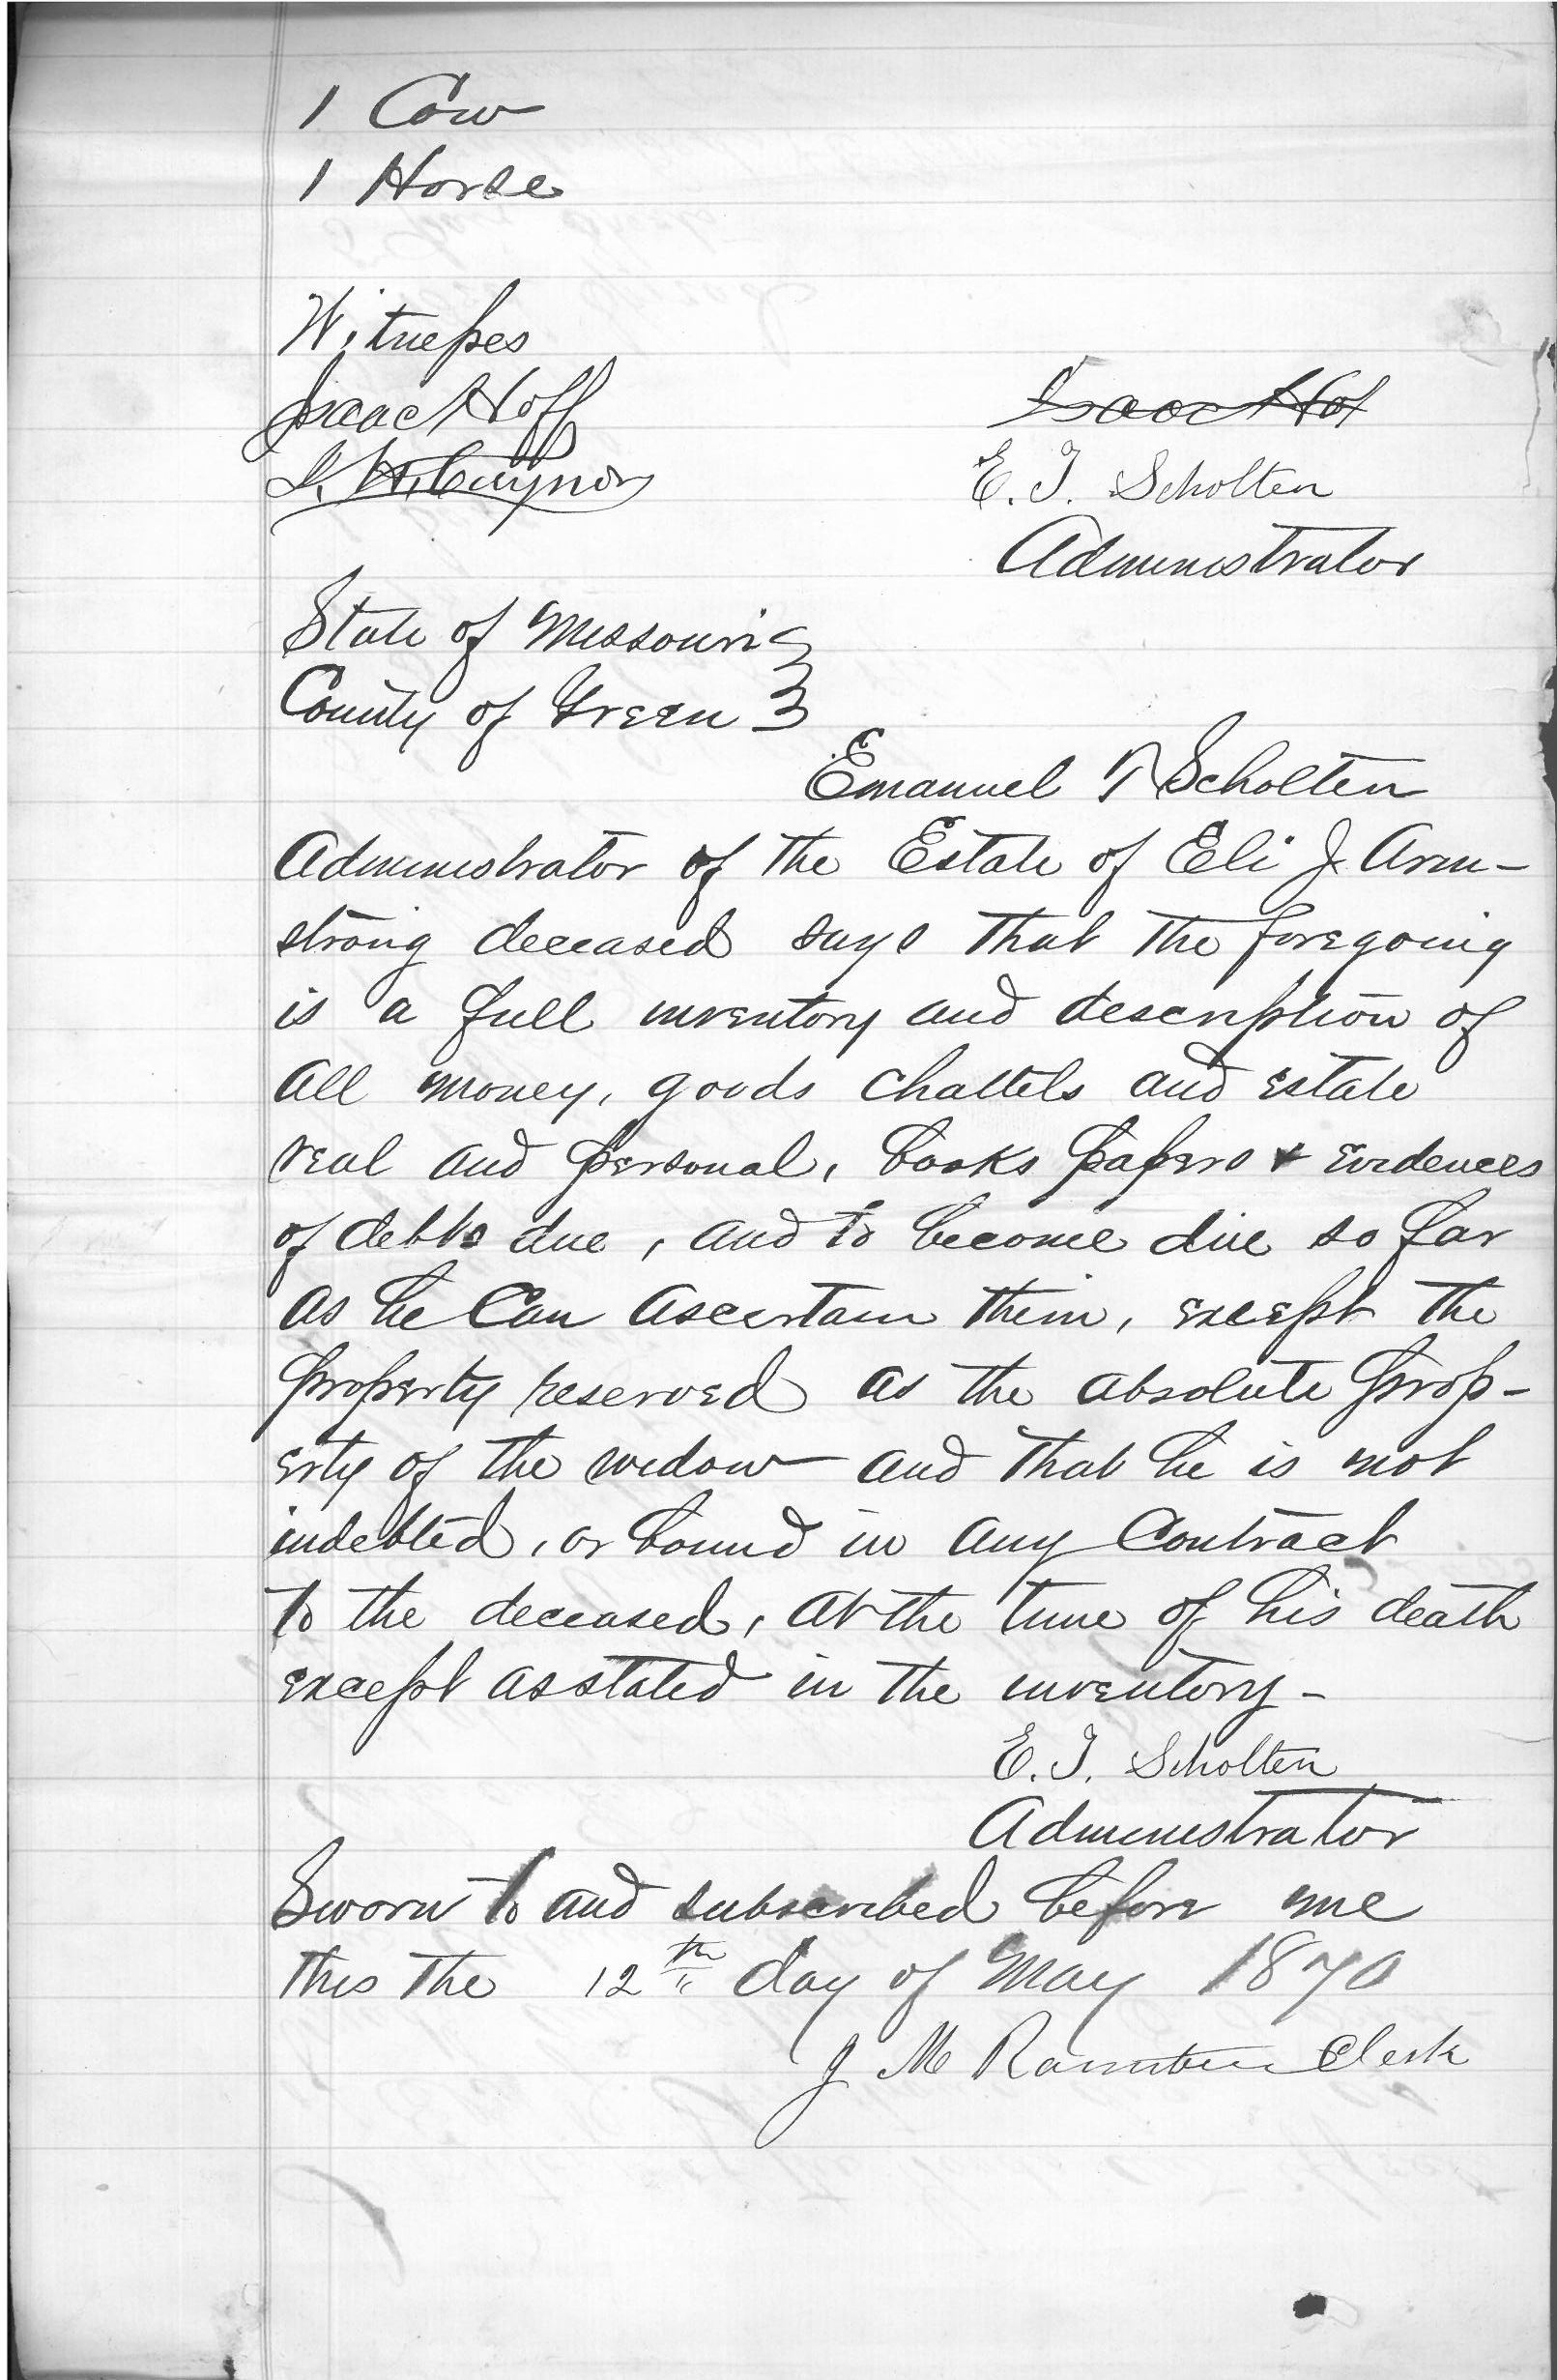 1 Cow
1 Horse
Witnesses
Isaac Hoff
Isaac Hof
E. T. Scholten
Administrator
State of Missouri
County of Green
Emanuel T Scholten
Administrator of the Estate of Eli J. Arm-
strong deceased says that the foregoing
is a full inventory and description of
all money, goods chattels and estate
real and personal, books papers & evidences
of debts due, and to become due so far
as he Can ascertain them, except the
property reserved as the absolute prop-
erty of the widow and that he is not
indebted, or bound in any Contract
to the deceased, at the time of his death
except as stated in the inventory -
E. T. Scholten
Administrator
Sworn to and subscribed before me
this the 12th day of May 1870
J M Clerk